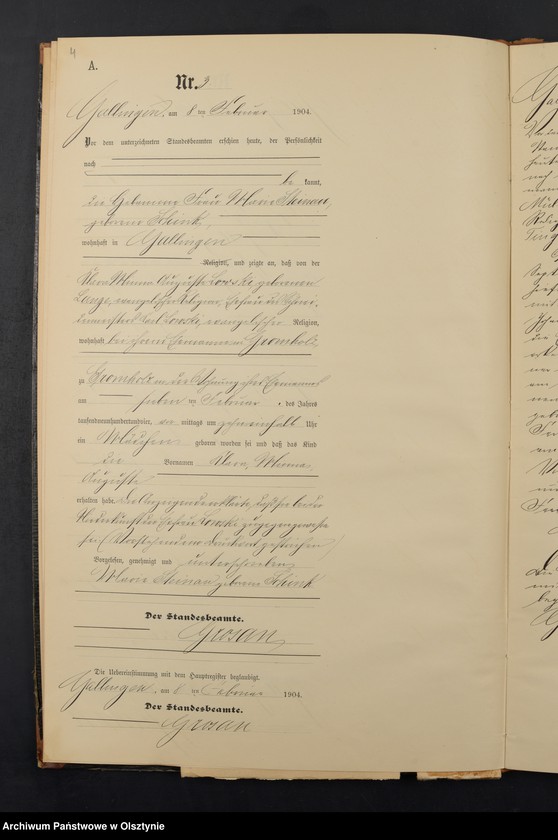 4
A.
Nr. 9.
Gallingen, am 8 ten Februar 1904.
Vor dem unterzeichneten Standesbeamten erschien heute, der Persönlichkeit
nach
be kannt,
die Hebamme Frau Maria Steinau,
geborene Schink
wohnhaft in Gallingen
Religion, und zeigte an, daß von der
Klara Minna Auguste Lowski geborenen
Lange, evangelischer Religion, Ehefrau des
Carl Lowski, evangelischer Religion,
wohnhaft bei ihrem Ehemanne in Kromholz
zu Kromholz in der Wohnung ihres Ehemannes
am ten Februar des Jahres
tausendneunhundertundvier, mittags um zehneinhalb Uhr
ein Mädchen geboren worden sei und daß das Kind
die Vornamen Klara, Minna,
Auguste
erhalten habe. Die Anzeigende erklärte, daß sie bei der
Niederkunft der Ehefrau Lowski zugegen gewesen
sei. (Vorstehend ein Druckwort gestrichen)
Vorgelesen, genehmigt und unterschrieben
Maria Steinau geborene Schink
Der Standesbeamte.
Grosan
Die Uebereinstimmung mit dem Hauptregister beglaubigt.
Gallingen, am 8 ten Februar 1904.
Der Standesbeamte.
Grosan
Archiwum Państwowe w Olsztynie